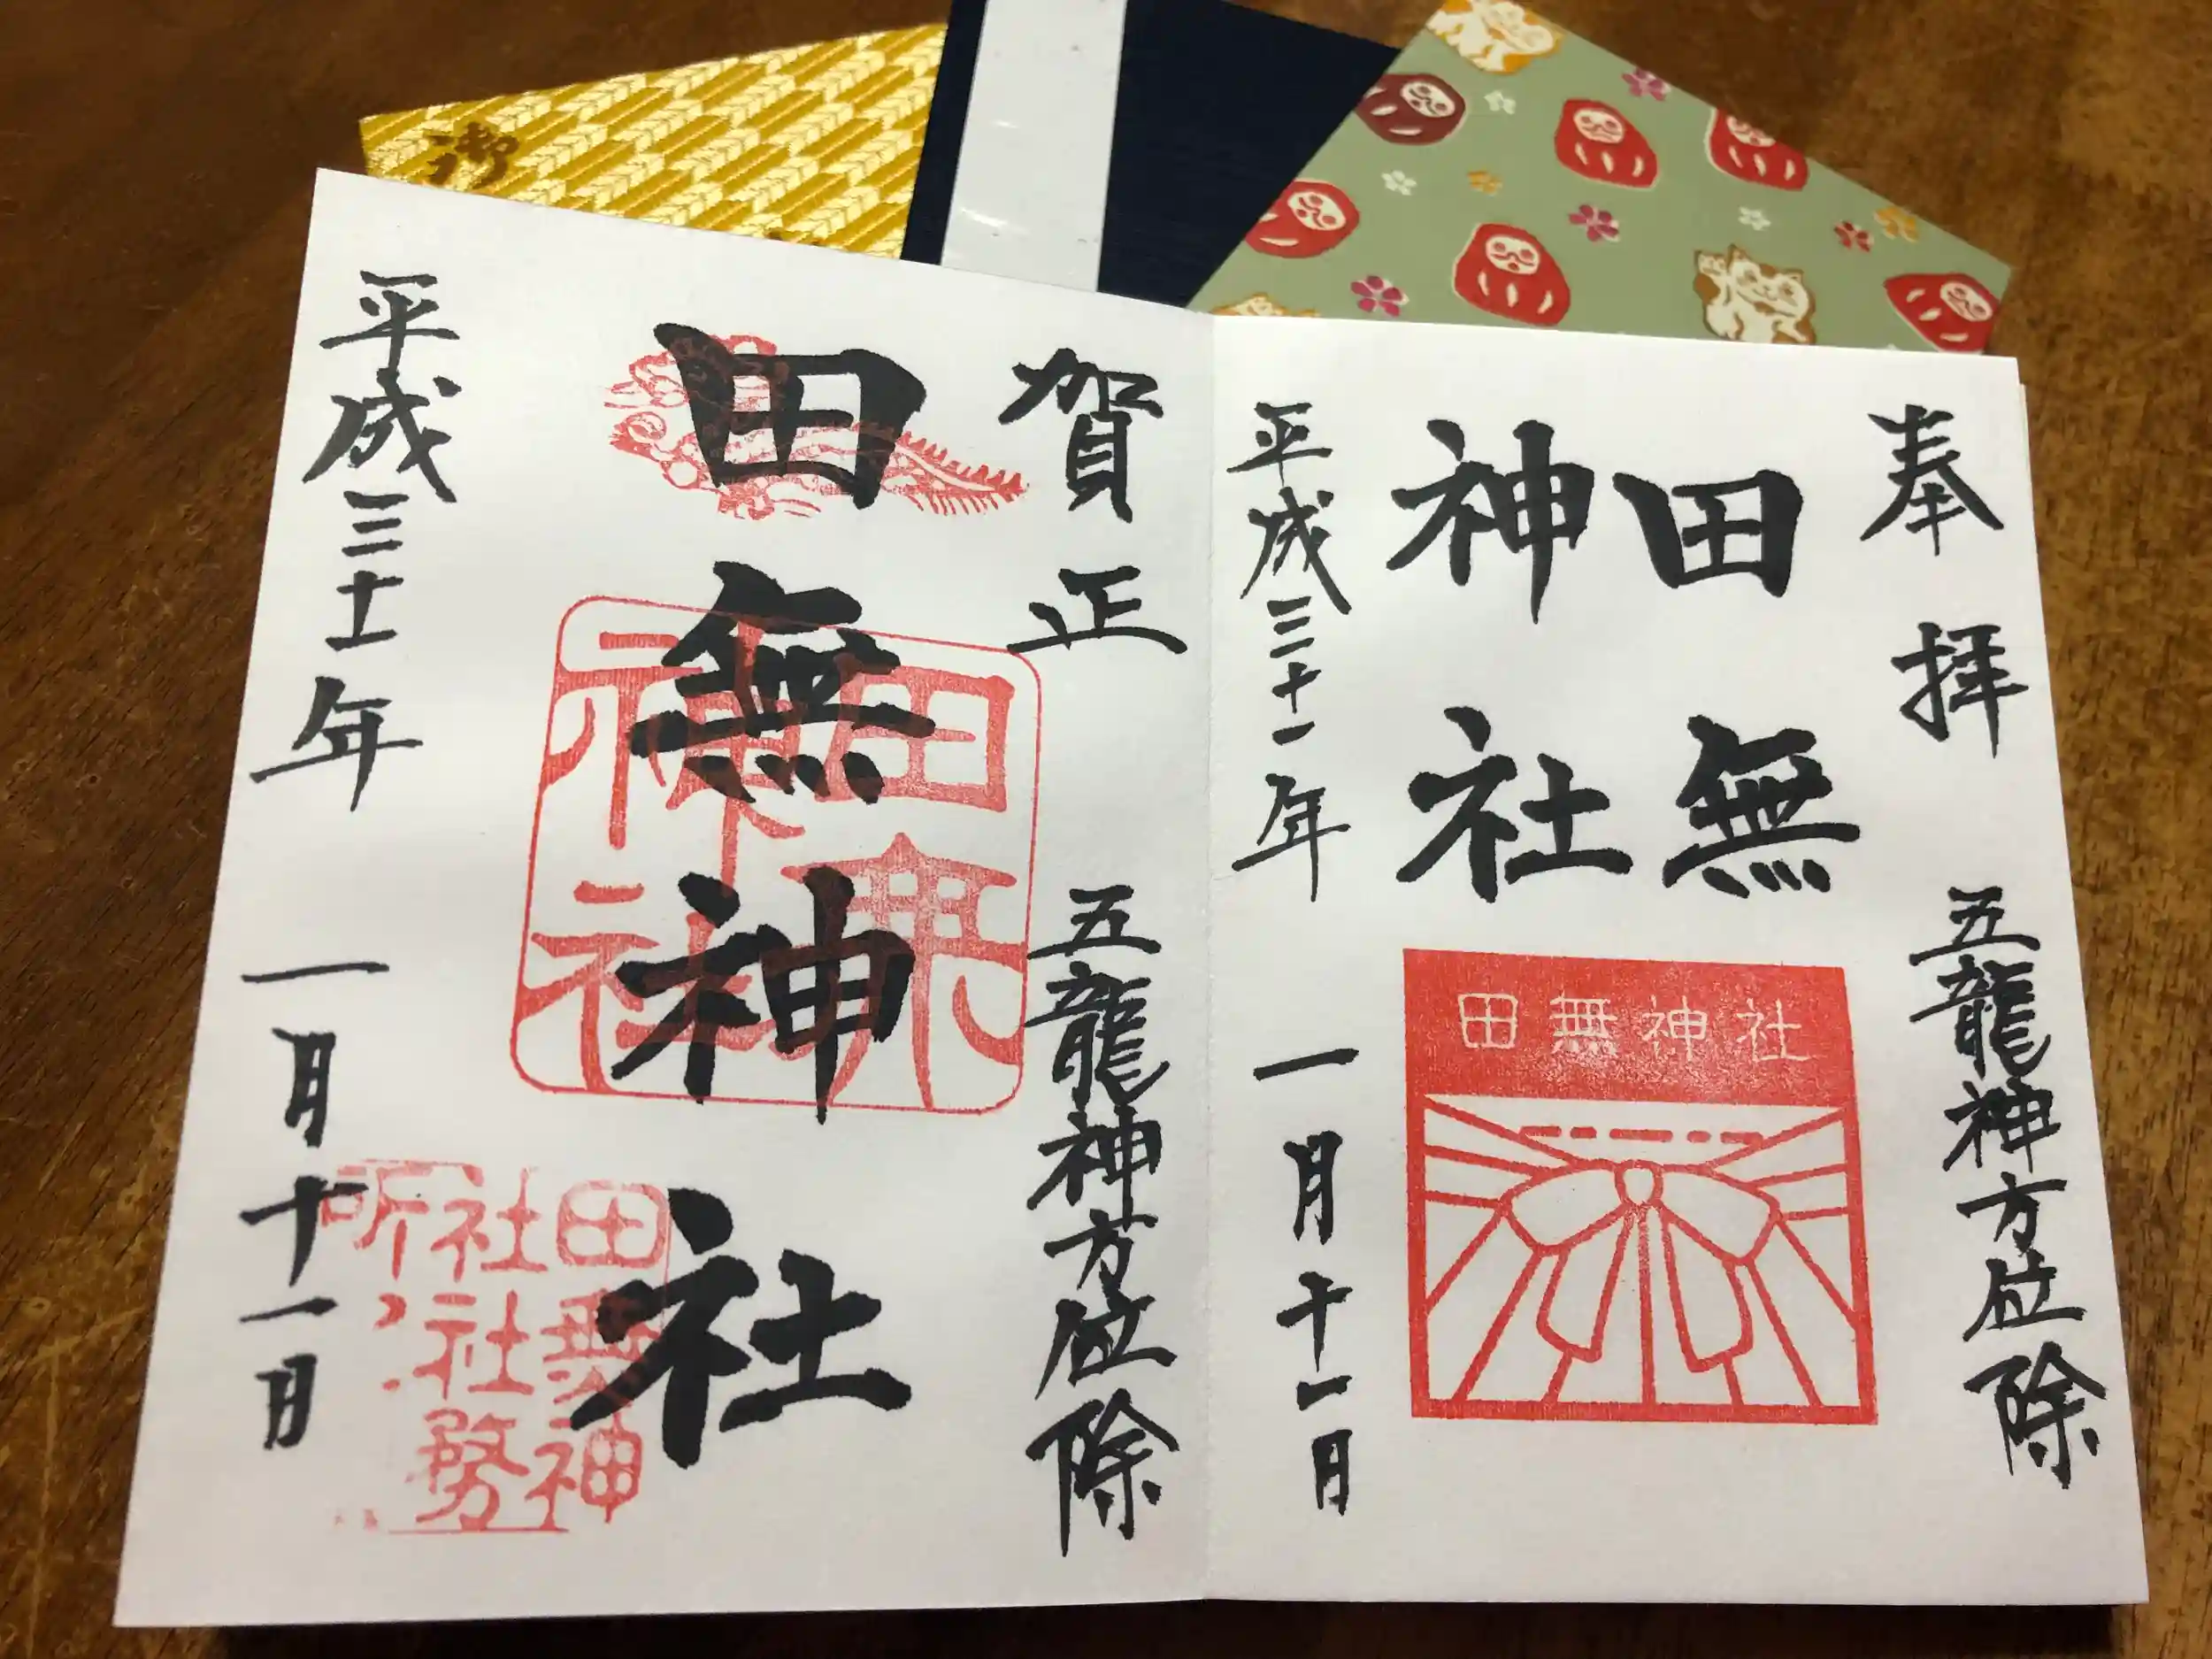 御
奉拝
五龍神方位除
田無
神社
田無神社
平成三十一年
一月十一日
賀正
五龍神方位除
田無神社
田無
神社
田無神
社社務
所
平成三十一年
一月十一日